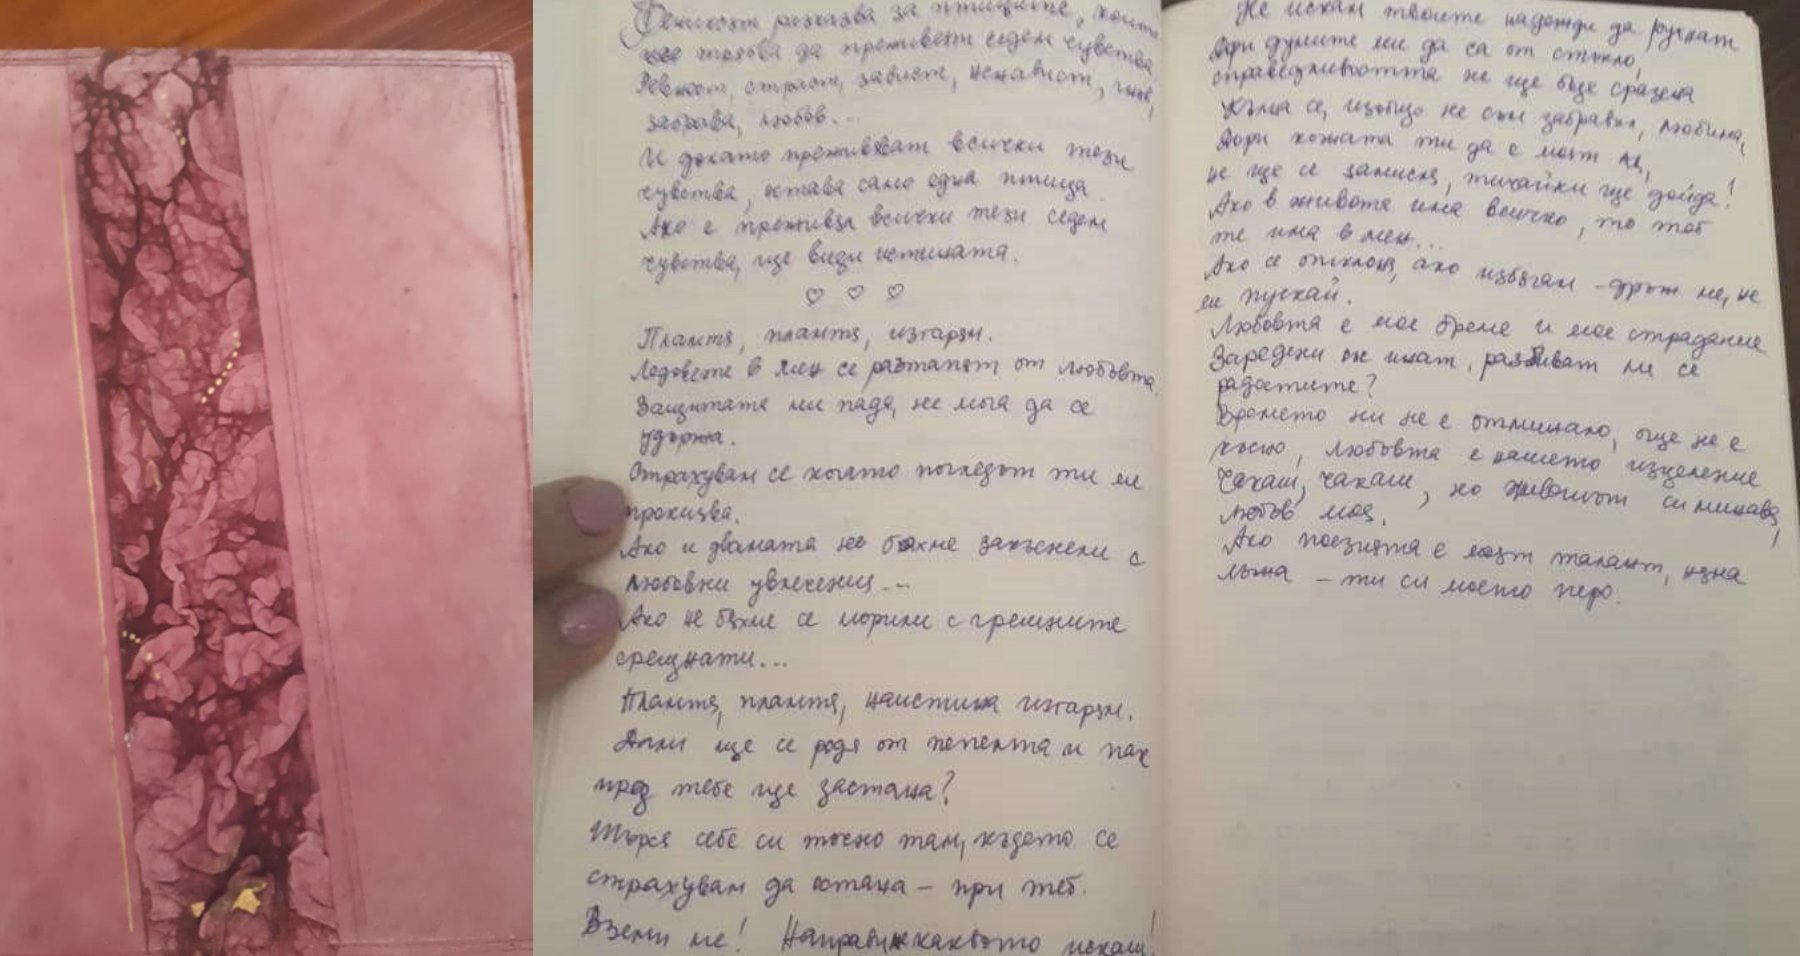 Феникът разказва за птиците, които
трябва да преживеят седем чувства
Ревност, страст, завист, ненавист, гняв,
забрава, любов...
И докато преживяват всички тези
чувства, остава само една птица.
Ако е преживяла всички тези седем
чувства, ще види истината.
♡ ♡ ♡
Пламтя, пламтя, изгарям.
Ледовете в мен се разтапят от любовта.
Защитата ми пада, не мога да се
удържа.
Страхувам се когато погледът ти ме
пронизва.
Ако и двамата не бяхме закъснели с
любовни увлечения...
Ако не бяхме се морили с грешните
срещнати...
Пламтя, пламтя, наистина изгарям.
Дали ще се родя от пепелта и пак
пред тебе ще застана?
Търся себе си точно там, където се
страхувам да остана – при теб.
Вземи ме! Направи каквото искаш!
Не искам твоите надежди да рухнат
Дори думите ми да са от стъкло,
справедливостта не ще бъде сразена
Кълна се, изобщо не съм забравил, любима,
Дори кожата ти да е моят ад,
не ще се замисля, тичайки ще дойда!
Ако в живота има всичко, то теб
те има в мен...
Ако се отклоня, ако избягам – дръж ме, не
ме пускай.
Любовта е мое бреме и мое страдание
Заредени ни имат, разбиват ли се
радостите?
Времето ни не е отминало, още не е
късно, любовта е нашето изцеление
Чакаш, чакаш, но животът си минава,
любов моя.
Ако поезията е моят талант, една
лъжа – ти си моето перо.